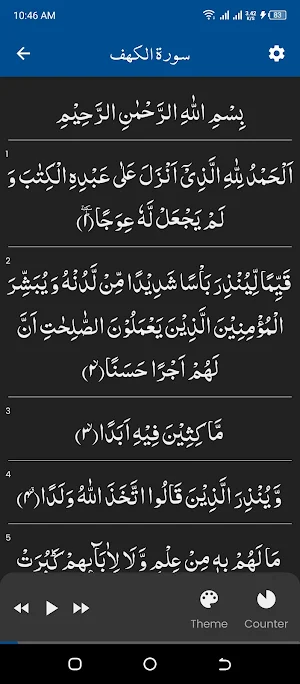 10:46 AM
3.42 KB/s
83
سورة الكهف
بِسْمِ اللّٰهِ الرَّحْمٰنِ الرَّحِيْمِ
1
اَلْحَمْدُ لِلّٰهِ الَّذِيْۤ اَنْزَلَ عَلٰى عَبْدِهِ الْكِتٰبَ وَ
لَمْ يَجْعَلْ لَّهٗ عِوَجًاؕٚ(۱)
2
قَيِّمًا لِّيُنْذِرَ بَاْسًا شَدِيْدًا مِّنْ لَّدُنْهُ وَ يُبَشِّرَ
الْمُؤْمِنِيْنَ الَّذِيْنَ يَعْمَلُوْنَ الصّٰلِحٰتِ اَنَّ
لَهُمْ اَجْرًا حَسَنًاۙ(۲)
3
مَّاكِثِيْنَ فِيْهِ اَبَدًاۙ(۳)
4
وَّ يُنْذِرَ الَّذِيْنَ قَالُوا اتَّخَذَ اللّٰهُ وَلَدًاۗ(۴)
5
مَا لَهُمْ بِهٖ مِنْ عِلْمٍ وَّ لَا لِاٰبَآىٕهِمْؕ كَبُرَتْ
Theme
Counter